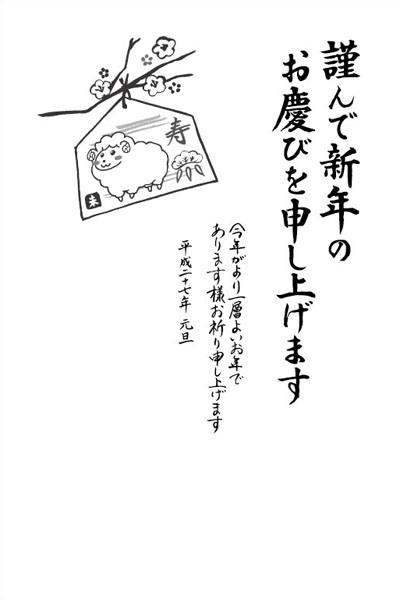 謹んで新年の
お慶びを申し上げます
寿
未
今年がより一層よいお年で
あります様お祈り申し上げます
平成二十七年 元旦